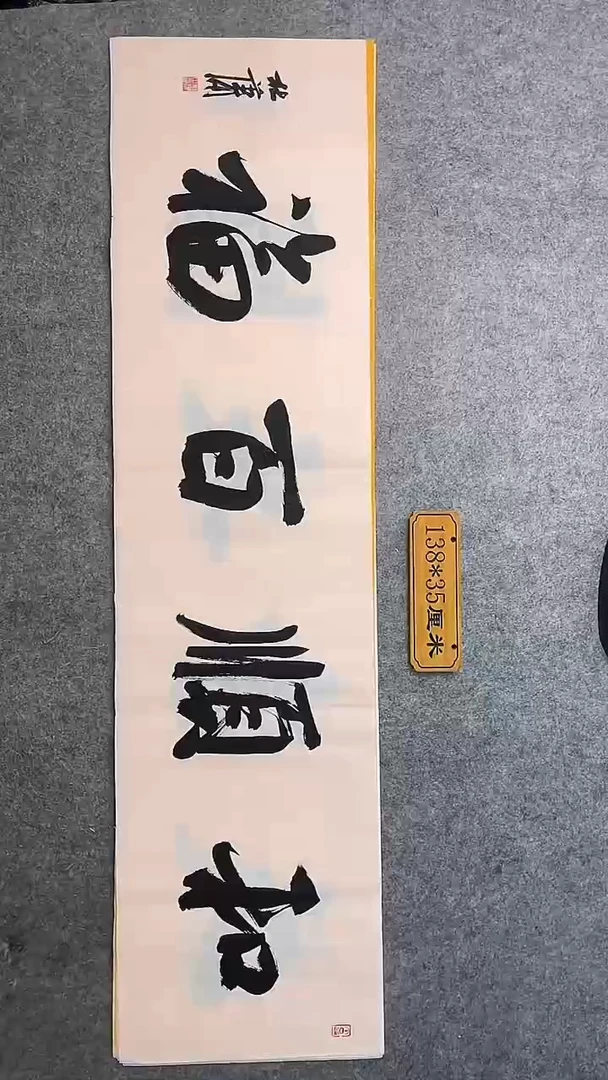 和順百福
138*35厘米